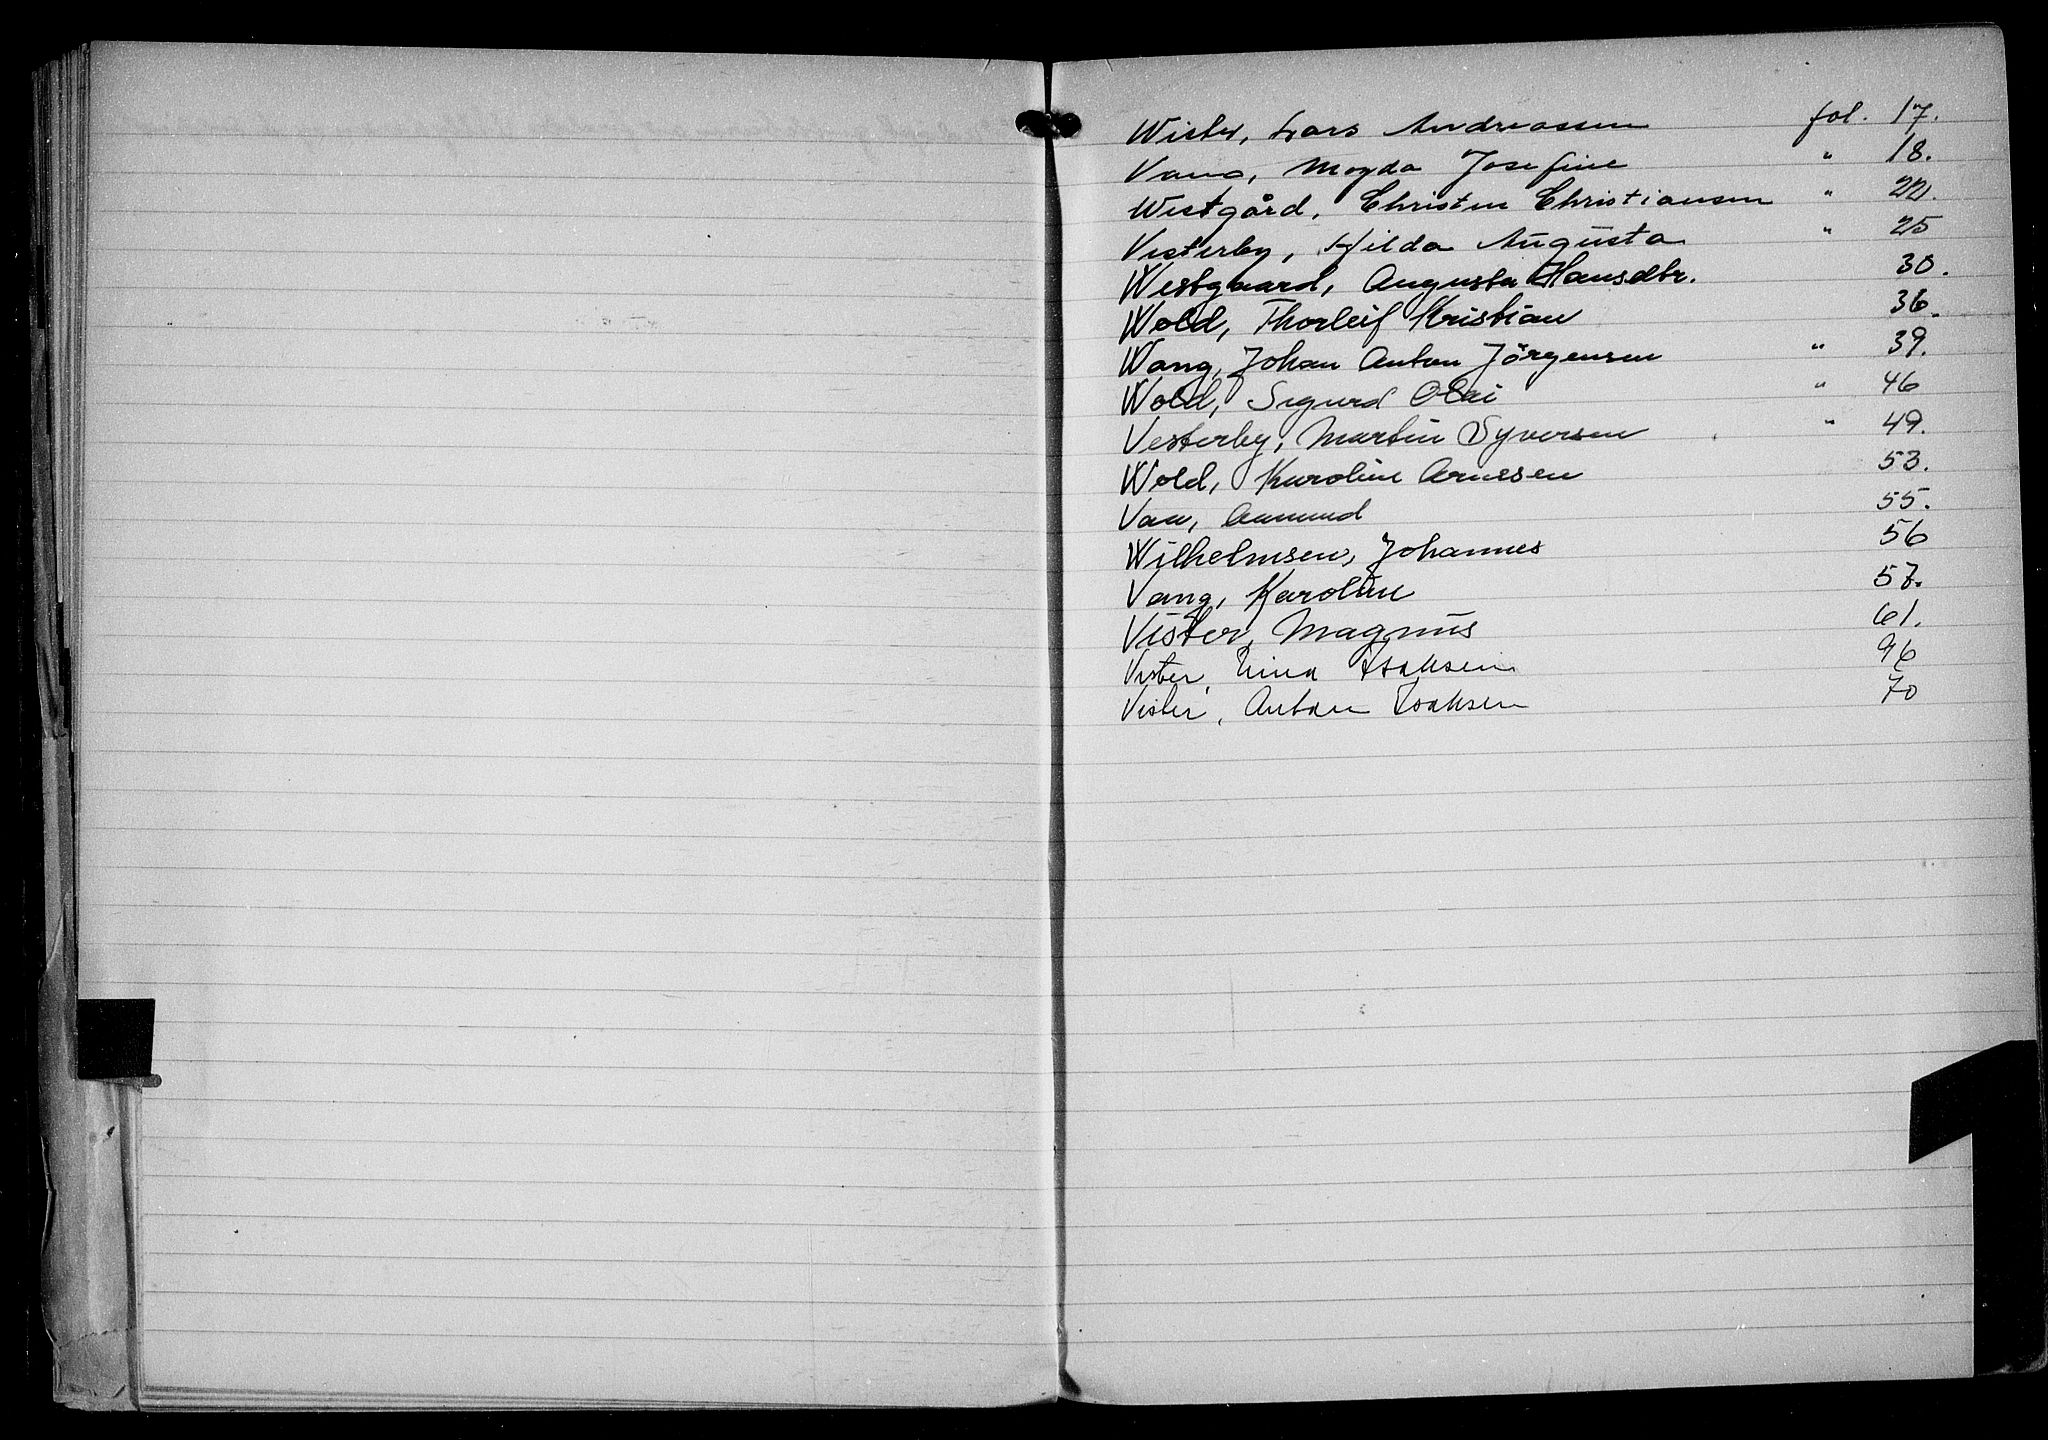 Wister, Lars Andreassen fol. 17.
Vang, Magda Josefine " 18.
Westgård, Christen Christiansen " 22.
Vesterby, Hilda Augusta " 25
Westgaard, Augusta Hansdtr. 30.
Wold, Thorleif Kristian 36.
Wang, Johan Anton Jörgensen " 39.
Wold, Sigurd Olai " 46
Vesterby, Martin Syversen " 49.
Wold, Karoline Arnesen 53.
Vaa, Aamund 55.
Wilhelmsen, Johannes 56
Vang, Karoline 57.
Vister, Magnus 61.
Vister, Isaksen 96
Vister, Anton Isaksen 70